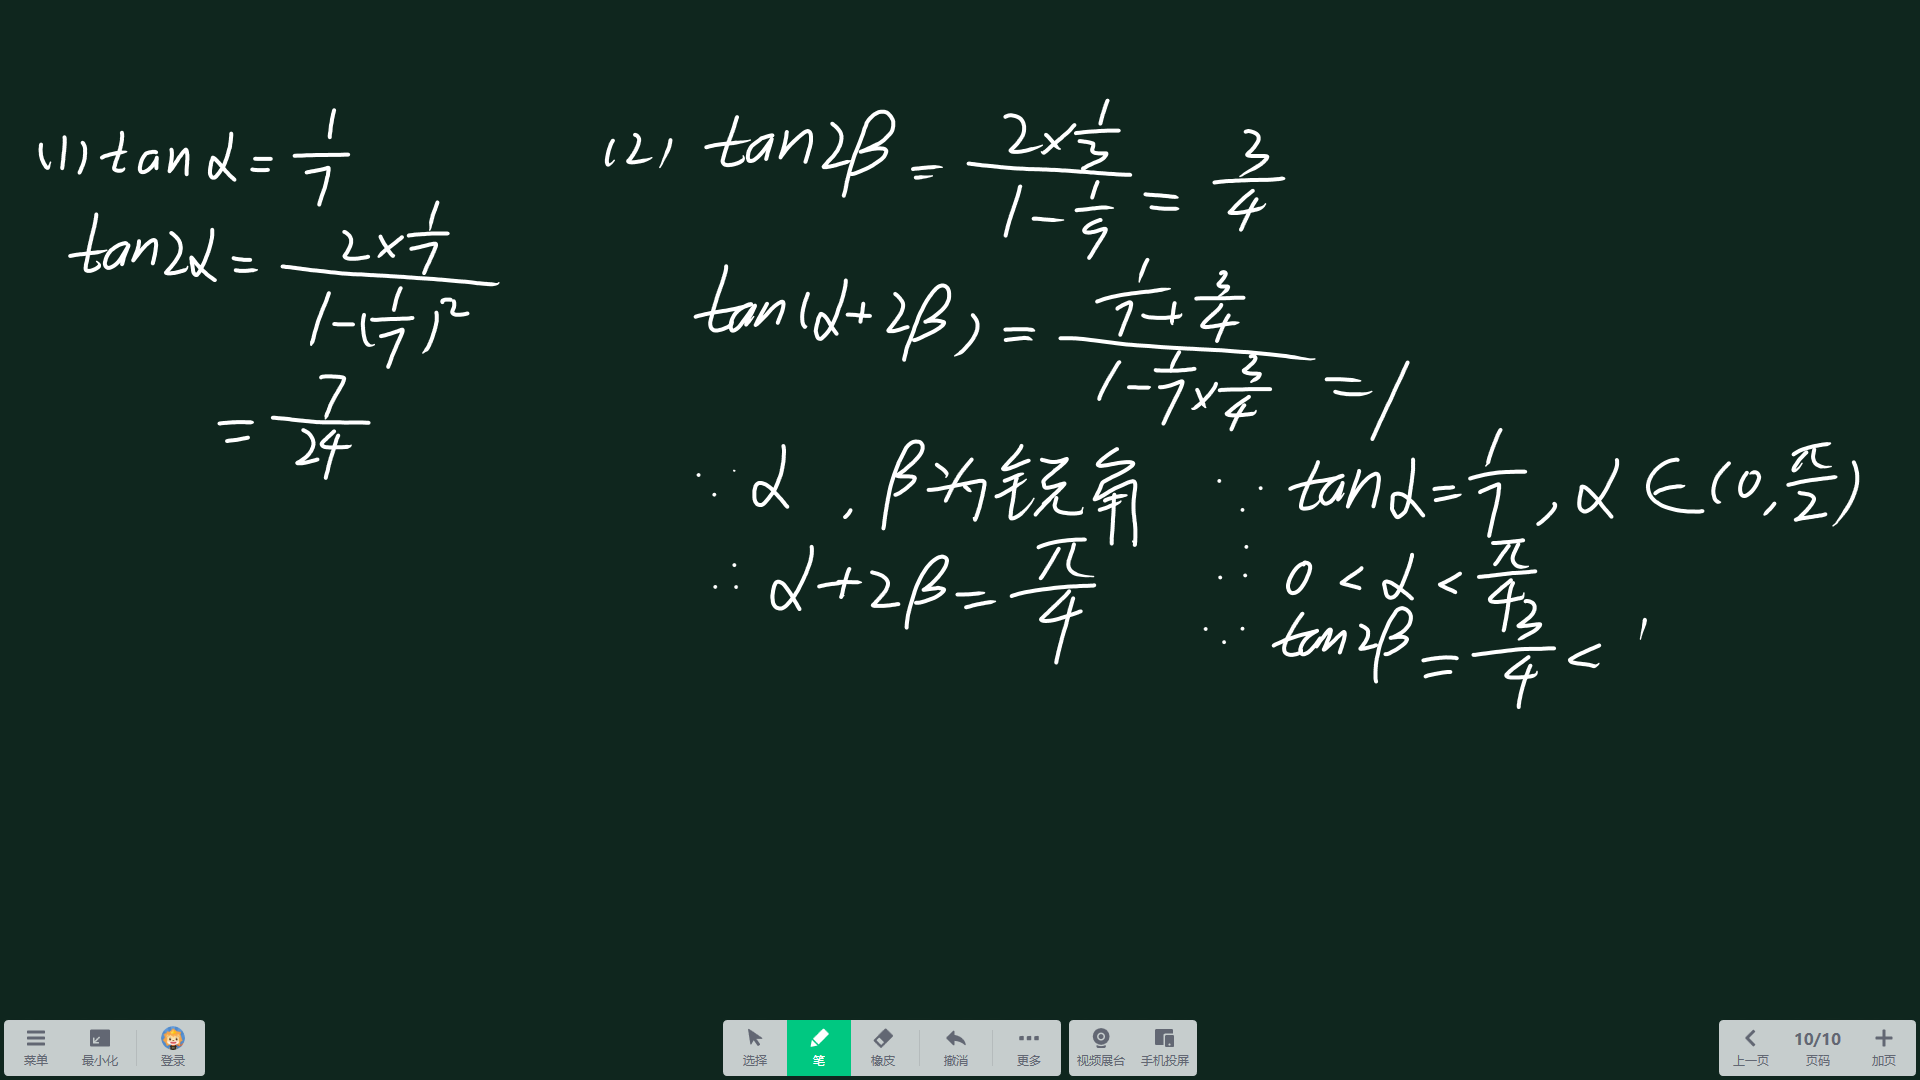 (1) tanα = 1/7
tan2α = (2×1/7)/(1-(1/7)²)
= 7/24
(2) tan2β = (2×1/3)/(1-1/9) = 3/4
tan(α+2β) = (1/7+3/4)/(1-1/7×3/4) = 1
∵ α,β为锐角
∴ α+2β = π/4
∵ tanα = 1/7, α∈(0,π/2)
∴ 0<α<π/4
∵ tan2β = 3/4 < 1
菜单 最小化 登录
选择 笔 橡皮 撤消 更多
视频展台 手机投屏
上一页 10/10 页码 加页